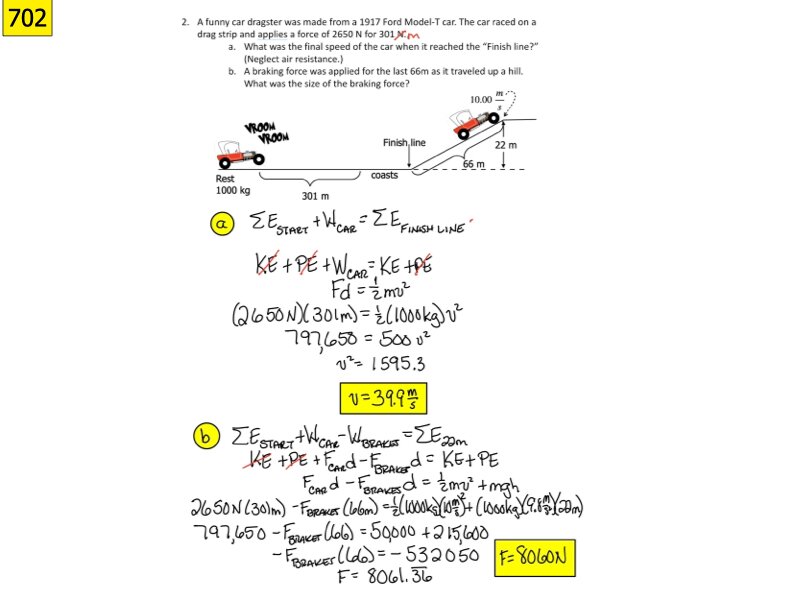 702
2. A funny car dragster was made from a 1917 Ford Model-T car. The car raced on a
drag strip and applies a force of 2650 N for 301 N·m
a. What was the final speed of the car when it reached the "Finish line?"
(Neglect air resistance.)
b. A braking force was applied for the last 66m as it traveled up a hill.
What was the size of the braking force?
10.00 m/s
VROOM
VROOM
Finish line
22 m
66 m
Rest
coasts
1000 kg
301 m
a ΣE_START + W_CAR = ΣE_FINISH LINE
KE + PE + W_CAR = KE + PE
Fd = 1/2 mv²
(2650N)(301m) = 1/2 (1000kg) v²
797,650 = 500 v²
v² = 1595.3
v = 39.9 m/s
b ΣE_START + W_CAR - W_BRAKES = ΣE_22m
KE + PE + F_CAR d - F_BRAKES d = KE + PE
F_CAR d - F_BRAKES d = 1/2 mv² + mgh
2650N(301m) - F_BRAKES (66m) = 1/2 (1000kg)(10 m/s)² + (1000kg)(9.8 m/s²)(22m)
797,650 - F_BRAKES (66) = 50,000 + 215,600
- F_BRAKES (66) = -532050
F = 8060N
F = 8061.36